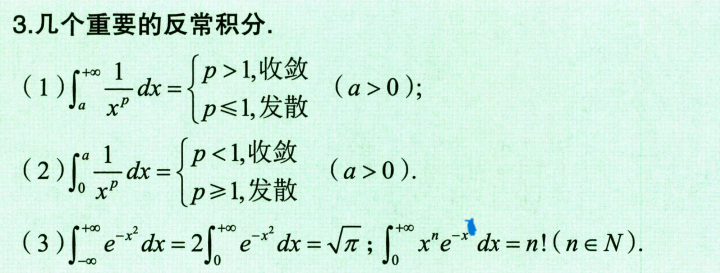 3.几个重要的反常积分.
(1)∫ₐ^{+∞} 1/x^p dx = { p>1,收敛 (a>0);
p≤1,发散
(2)∫₀^a 1/x^p dx = { p<1,收敛 (a>0).
p≥1,发散
(3)∫_{-∞}^{+∞} e^{-x²} dx = 2∫₀^{+∞} e^{-x²} dx = √π ; ∫₀^{+∞} x^n e^{-x} dx = n! (n∈N).